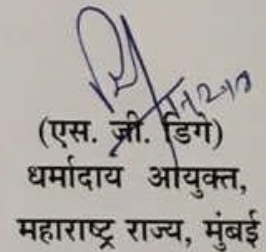 (एस. जी. डिगे)
धर्मादाय आयुक्त,
महाराष्ट्र राज्य, मुंबई